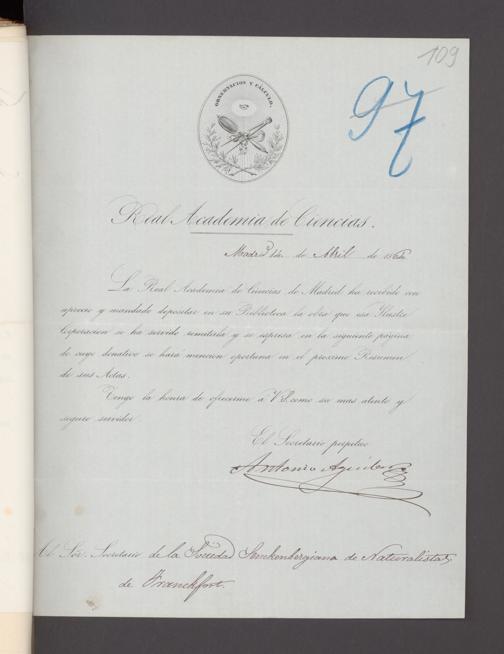 109
97
OBSERVACION Y CÁLCULO.
Real Academia de Ciencias.
Madrid 14 de Abril de
La Real Academia de Ciencias de Madrid ha recibido con
aprecio y mandado depositar en su Biblioteca la obra que esa Ilustre
Corporacion se ha servido remitirla y se espresa en la siguiente página
de cuyo donativo se hará mencion oportuna en el próximo Resumen
de sus Actas.
Tengo la honra de ofrecerme á V.S. como su mas atento y
seguro servidor.
El Secretario perpétuo
Antonio Aguilar
Al Sor. Secretario de la Sociedad Senckenbergiana de Naturalistas
de Franckfort.